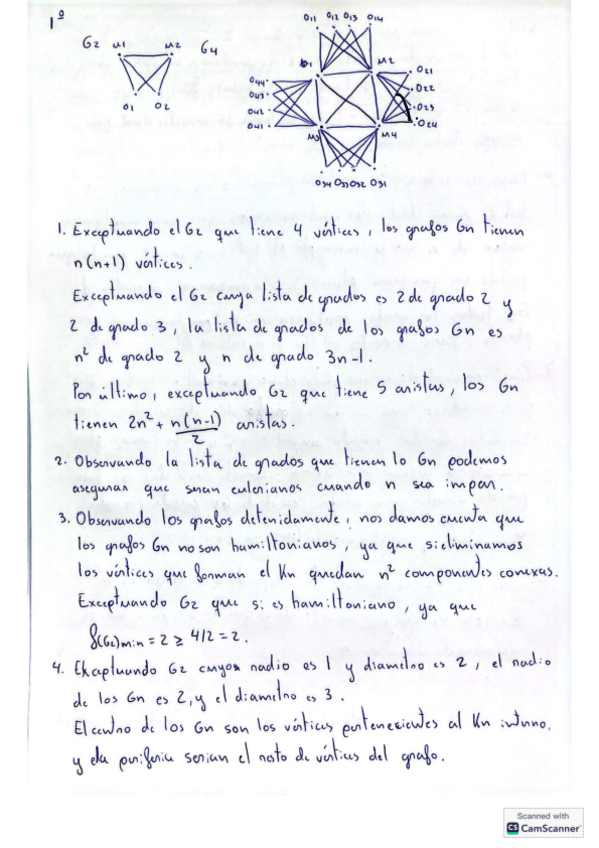 1º
G2 M1 M2 G4
O1 O2
O11 O12 O13 O14
M1 M2
O44
O43
O42
O41
O21
O22
O23
O24
M3 M4
O34 O33 O32 O31
1. Exceptuando el G2 que tiene 4 vértices, los grafos Gn tienen
n(n+1) vértices.
Exceptuando el G2 cuya lista de grados es 2 de grado 2 y
2 de grado 3, la lista de grados de los grafos Gn es
n² de grado 2 y n de grado 3n-1.
Por último, exceptuando G2 que tiene 5 aristas, los Gn
tienen 2n² + n(n-1)/2 aristas.
2. Observando la lista de grados que tienen lo Gn podemos
asegurar que serán eulerianos cuando n sea impar.
3. Observando los grafos detenidamente, nos damos cuenta que
los grafos Gn no son hamiltonianos, ya que si eliminamos
los vértices que forman el Kn quedan n² componentes conexas.
Exceptuando G2 que si es hamiltoniano, ya que
δ(G2)min = 2 ≥ 4/2 = 2.
4. Exceptuando G2 cuyos radio es 1 y diametro es 2, el radio
de los Gn es 2, y el diametro es 3.
El centro de los Gn son los vértices pertenecientes al Kn interno,
y la periferia serian el resto de vértices del grafo.
Scanned with
CS CamScanner